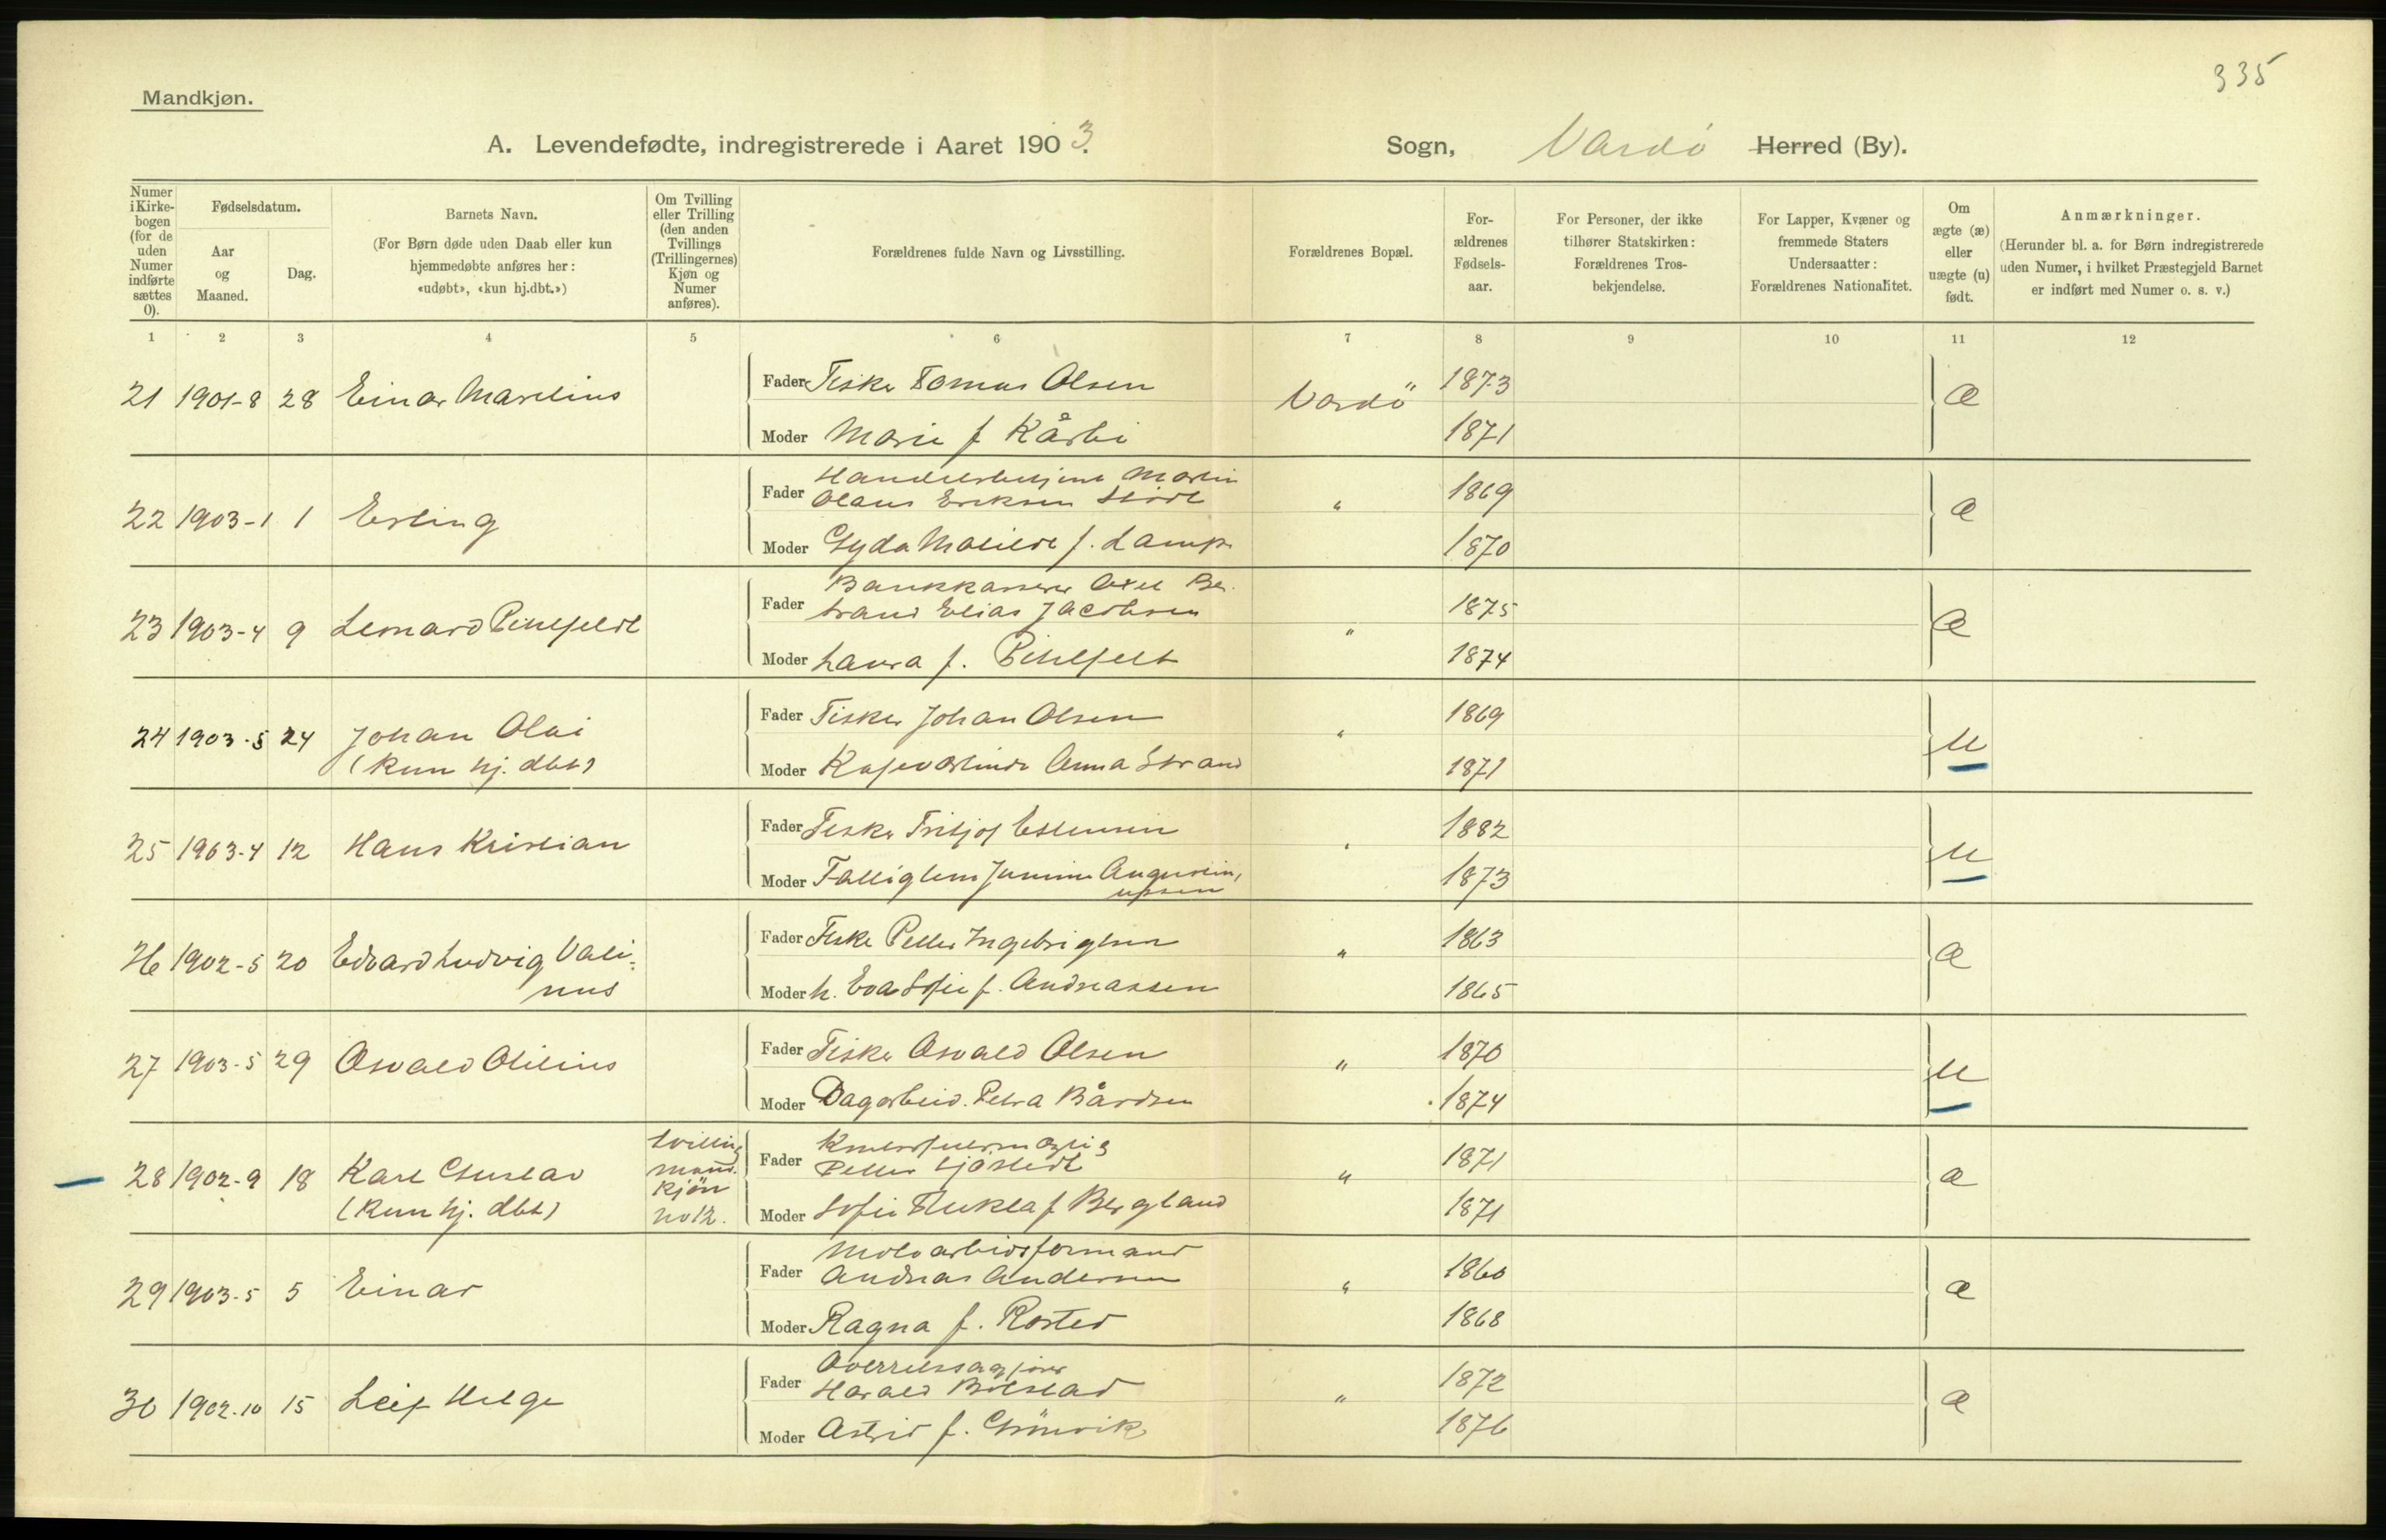 335
Mandkjøn.
A. Levendefødte, indregistrerede i Aaret 1903.
Sogn, Vardø Herred (By).
Numer i Kirkebogen (for de uden Numer indførte sættes 0).
Fødselsdatum.
Aar og Maaned.
Dag.
Barnets Navn.
(For Børn døde uden Daab eller kun hjemmedøbte anføres her: «udøbt», «kun hj.dbt.»)
Om Tvilling eller Trilling (den anden Tvillings (Trillingernes) Kjøn og Numer anføres).
Forældrenes fulde Navn og Livsstilling.
Forældrenes Bopæl.
Forældrenes Fødselsaar.
For Personer, der ikke tilhører Statskirken: Forældrenes Trosbekjendelse.
For Lapper, Kvæner og fremmede Staters Undersaatter: Forældrenes Nationalitet.
Om ægte (æ) eller uægte (u) født.
Anmærkninger.
(Herunder bl. a. for Børn indregistrerede uden Numer, i hvilket Præstegjeld Barnet er indført med Numer o. s. v.)
1 2 3 4 5 6 7 8 9 10 11 12
21 1901-8 28 Einar Marelius Fader Fisker Tomas Olsen Vardö 1873 æ
Moder Marie f Kårbi 1871
22 1903-1 1 Erling Fader Handelsbetjent Martin
Olaus Eriksen 1869 æ
Moder Gyda Matilde f. Lamp 1870 "
23 1903-4 9 Lenard Pihlfeldt Fader Bankkasserer Axel Ber-
trand Elias Jacobsen " 1875 æ
Moder Laura f. Pihlfelt 1874
24 1903-5 24 Johan Olai Fader Fisker Johan Olsen " 1869 u
(kun hj. dbt) Moder Anna Strand 1871
25 1903-4 12 Hans Kristian Fader Fisker Fritjof Estensen " 1882 u
Moder Fattiglem 1873
26 1902-5 20 Edvard Ludvig Vali- Fader Fisker Petter Ingebrigtsen " 1863 æ
nus Moder h. Eva Sofie f. Andreassen 1865
27 1903-5 29 Osvald Otilius Fader Fisker Osvald Olsen " 1870 u
Moder Dagarbeid. Petra Bårdsen 1874
28 1902-9 18 Karl Gustav tvilling Fader
(kun hj. dbt) mand- Petter Sjöstedt " 1871 æ
kjön Moder Sofie Tekla f Bergland 1871
no 12.
29 1903-5 5 Einar Fader Moloarbeidsformand
Andreas Andersen " 1860 æ
Moder Ragna f. Rosted 1868
30 1902-10 15 Leif Helge Fader Overretssagfører
Harald Bolstad " 1872 æ
Moder Astrid f. Grönvik 1876